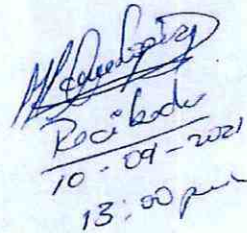 Recibido
10-09-2021
13:00 pm